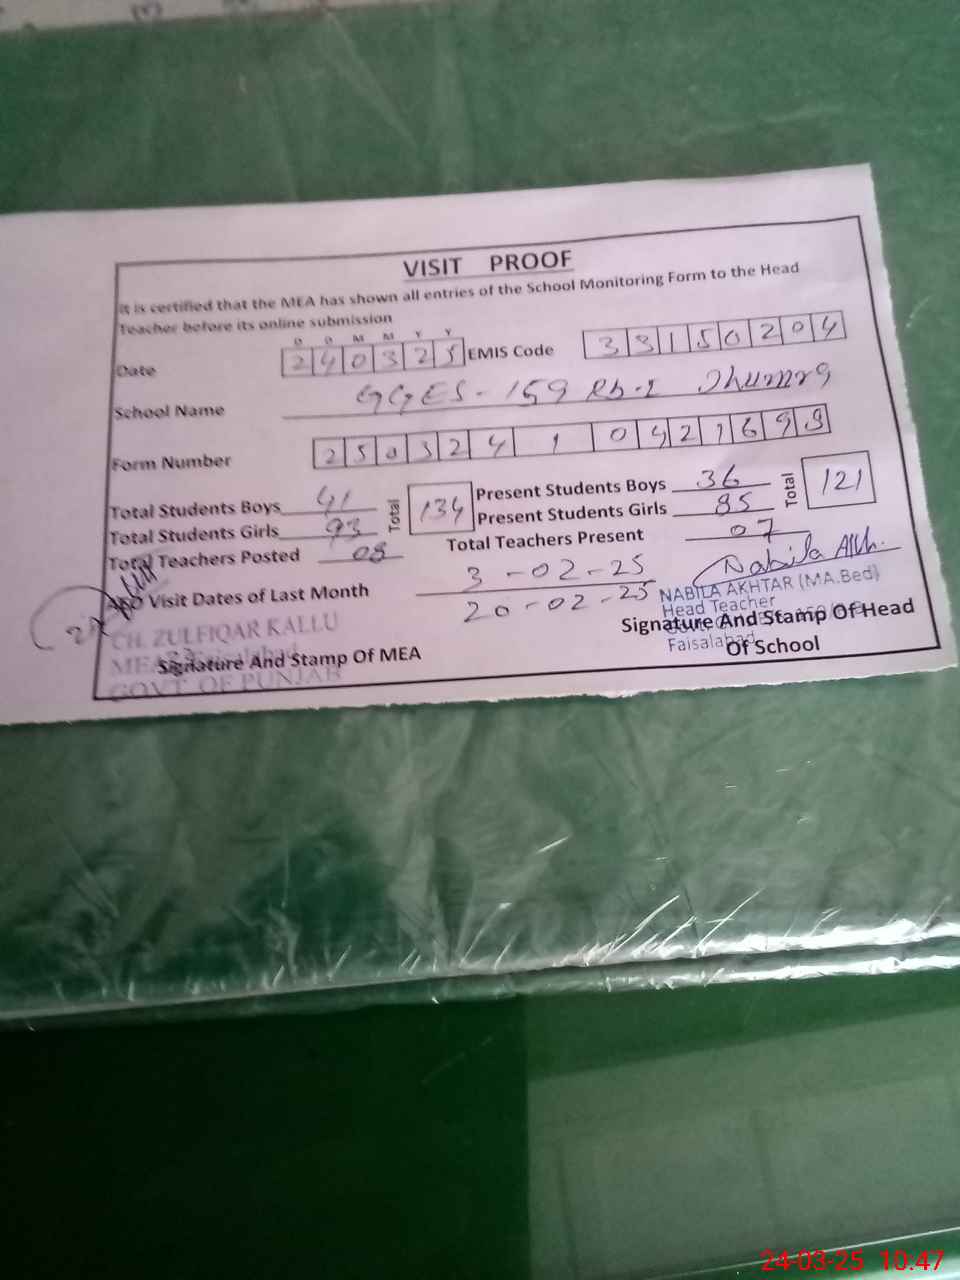 VISIT PROOF
It is certified that the MEA has shown all entries of the School Monitoring Form to the Head
Teacher before its online submission
D D M M Y Y
Date 240325 EMIS Code 33150204
School Name GGES-159 Rb-I Jhumra
Form Number 250324 1 04216 9
Total Students Boys 41 Total 134 Present Students Boys 36 Total 121
Total Students Girls 93 Present Students Girls 85
Total Teachers Posted 08 Total Teachers Present 07
Visit Dates of Last Month 3-02-25
20-02-25
Nabila Akh.
NABILA AKHTAR (MA.Bed)
Head Teacher
Faisalabad
Signature And Stamp Of Head
Of School
CH. ZULFIQAR KALLU
MEA Faisalabad
GOVT OF PUNJAB
Signature And Stamp Of MEA
24-03-25 10:47